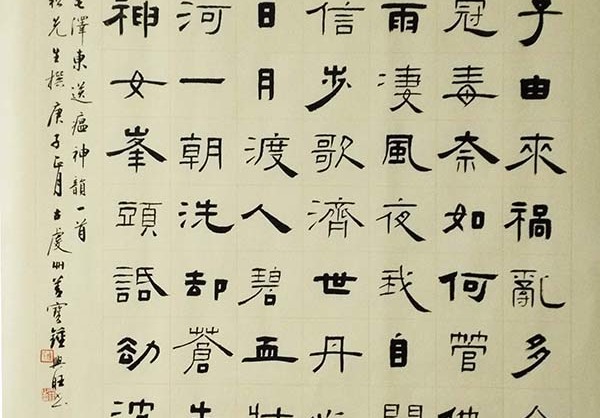 子由來禍亂多
冠毒奈如何管
雨淒風夜我自
信步歌濟世丹
日月渡人碧血
河一朝洗却蒼生
神女峯頭話劫波
毛澤東送瘟神韻一首
松先生撰庚子正月古虔州